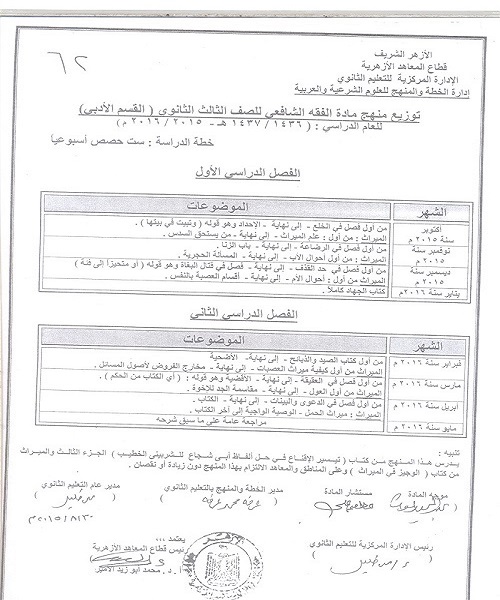 ٦٢
الأزهر الشريف
قطاع المعاهد الأزهرية
الإدارة المركزية للتعليم الثانوي
إدارة الخطة والمنهج للعلوم الشرعية والعربية
توزيع منهج مادة الفقه الشافعي للصف الثالث الثانوي ( القسم الأدبي )
للعام الدراسي : ( ١٤٣٦ / ١٤٣٧ هـ - ٢٠١٥ / ٢٠١٦ م )
خطة الدراسة : ست حصص أسبوعياً
الفصل الدراسي الأول
الشهر الموضوعات
أكتوبر سنة ٢٠١٥ م
من أول فصل في الخلع - إلى نهاية - الإحداد وهو قوله ( وتبيت في بيتها ) .
الميراث : من أول : علم الميراث - إلى نهاية - من يستحق السدس .
نوفمبر سنة ٢٠١٥ م
من أول فصل في الرضاعة - إلى نهاية - باب الزنا .
الميراث : من أول أحوال الأب - إلى نهاية - المسألة الحجرية .
ديسمبر سنة ٢٠١٥ م
من أول فصل في حد القذف - إلى نهاية - فصل في قتال البغاة وهو قوله ( أو متحيزاً إلى فئة )
الميراث من أول : أحوال الأم - إلى نهاية - أقسام العصبة بالنفس .
يناير سنة ٢٠١٦ م
كتاب الجهاد كاملاً .
الفصل الدراسي الثاني
الشهر الموضوعات
فبراير سنة ٢٠١٦ م
من أول كتاب الصيد والذبائح - إلى نهاية - الأضحية
الميراث من أول كيفية ميراث العصبات - إلى نهاية - مخارج الفروض لأصول المسائل .
مارس سنة ٢٠١٦ م
من أول فصل في العقيقة - إلى نهاية - الأقضية وهو قوله : ( أي الكتاب من الحكم ) .
الميراث من أول العول - إلى نهاية - مقاسمة الجد للإخوة .
ابريل سنة ٢٠١٦ م
من أول فصل في الدعوى والبينات - إلى نهاية - الكتاب .
الميراث : ميراث الحمل - الوصية الواجبة إلى آخر الكتاب .
مايو سنة ٢٠١٦ م
مراجعة عامة على ما سبق شرحه
تنبيه :
يدرس هذا المنهج من كتاب ( تيسير الإقناع في حل ألفاظ أبي شجاع للشربيني الخطيب ) الجزء الثالث والميراث
من كتاب ( الوجيز في الميراث ) وعلى المناطق والمعاهد الالتزام بهذا المنهج دون زيادة أو نقصان .
موجه المادة مستشار المادة مدير الخطة والمنهج بالتعليم الثانوي مدير عام التعليم الثانوي
رئيس الإدارة المركزية للتعليم الثانوي
يعتمد ...
رئيس قطاع المعاهد الأزهرية
أ.د. محمد أبو زيد الأمير